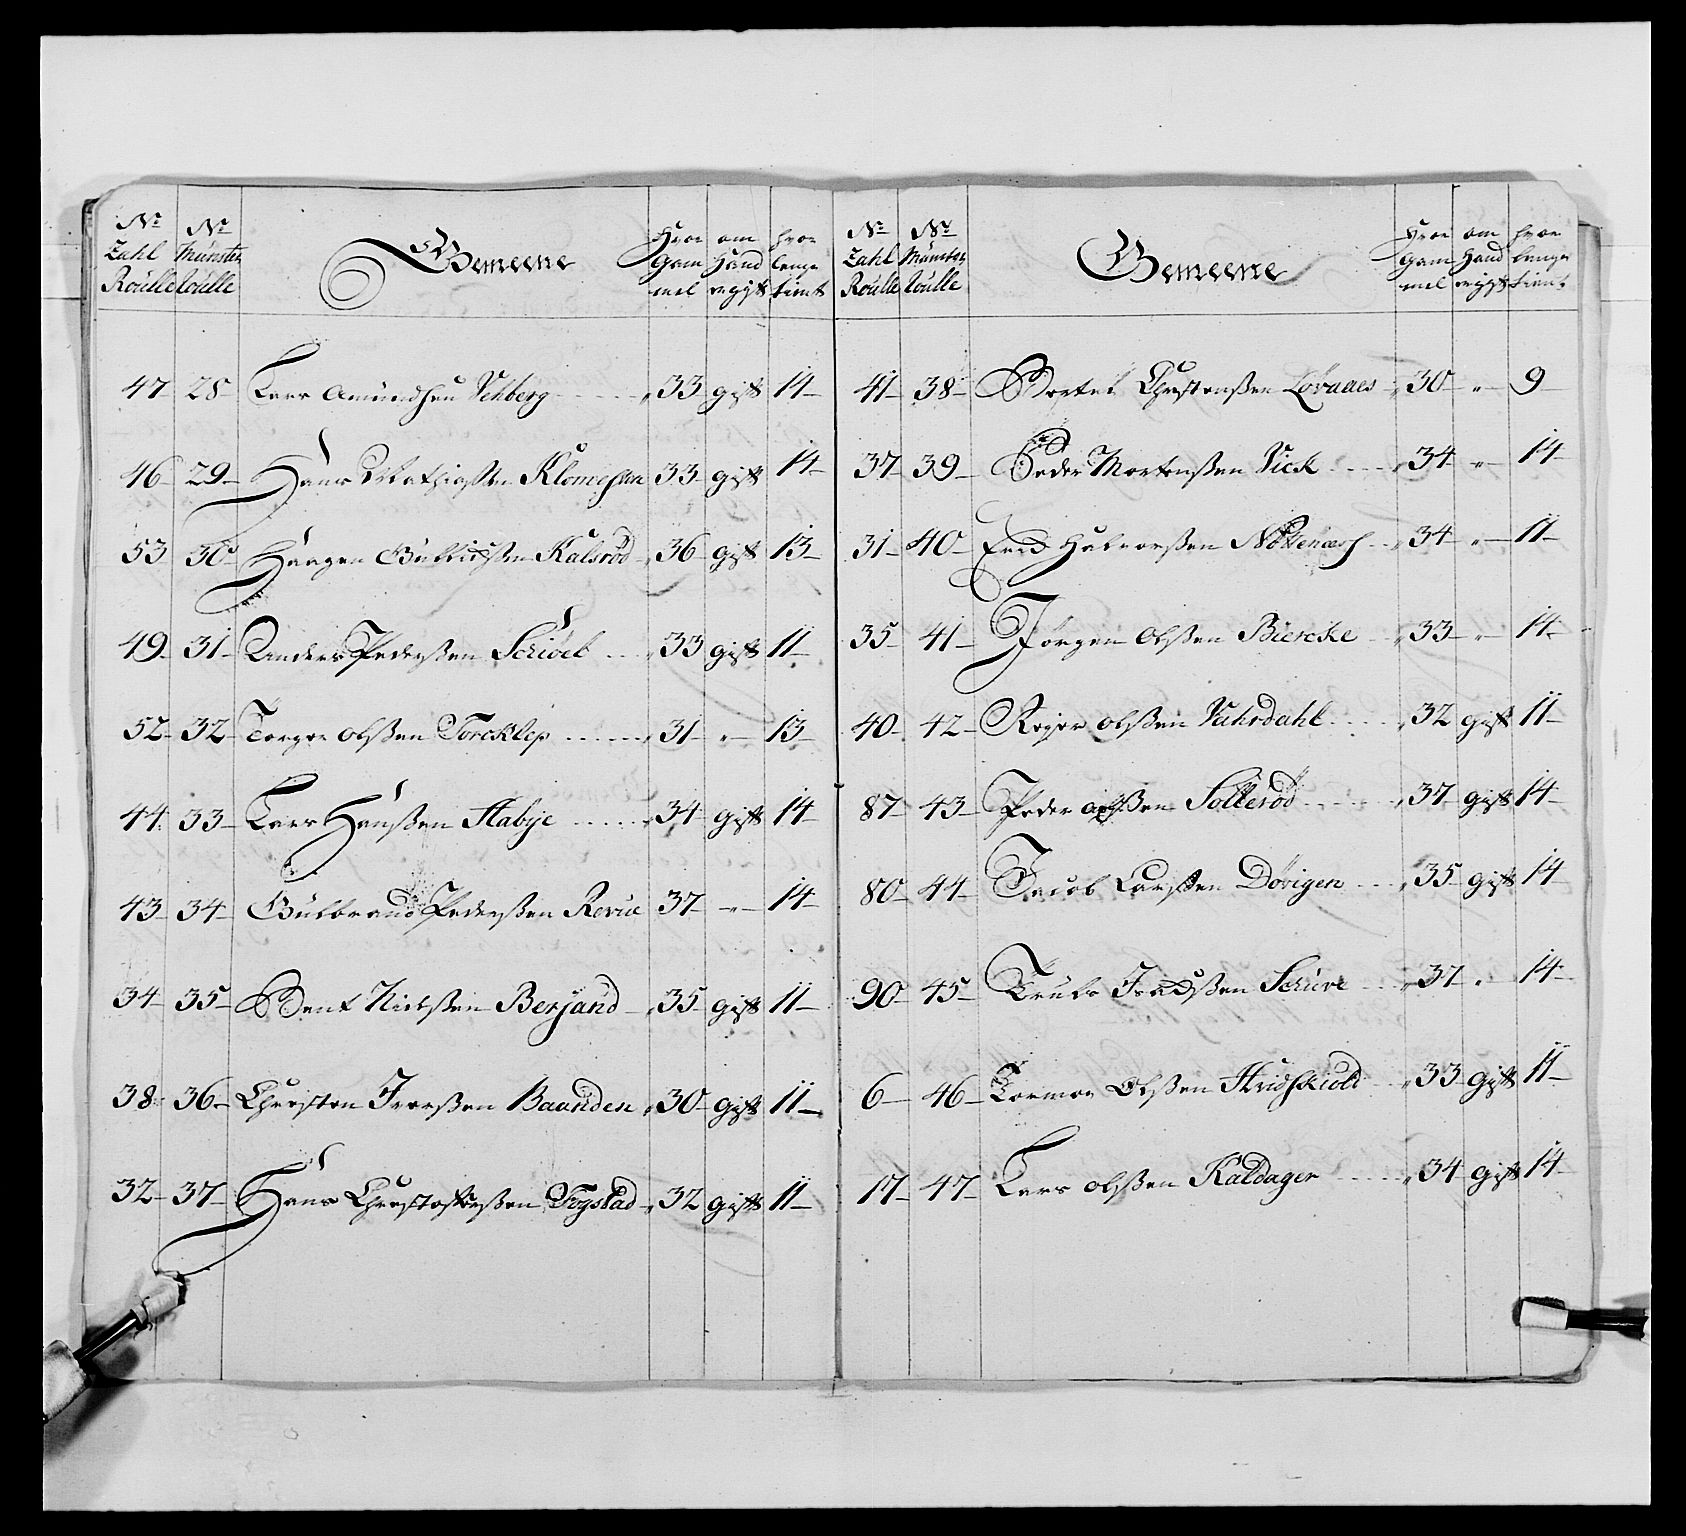 No Zahl Roulle | No Münster Roulle | Gemeene | Hvor Gammel | om Hand er gift | hvor lenge tient
47 28 Lars Amundsen Vehberg 33 gift 14
46 29 Hans Mathiaßen 33 gift 14
53 30 Haagen Kalsröd 36 gift 13
49 31 Anders Pederßen Schiöel 33 gift 11
52 32 Torger Olßen Torcklep 31 " 13
44 33 Lars Hanßen Habye 34 gift 14
43 34 Gulbrand Pederßen Revue 37 " 14
34 35 Bent Nielßen Berjand 35 gift 11
38 36 Christen Iverßen Baanden 30 gift 11
32 37 Hans Christofferßen Fogstad 32 gift 11
No Zahl Roulle | No Münster Roulle | Gemeene | Hvor Gammel | om Hand er gift | hvor lenge tient
41 38 Christenßen Lövaaes 30 " 9
37 39 Peder Mortenßen Vick 34 " 14
31 40 Halvorßen 34 " 11
35 41 Jörgen Olßen Biercke 33 " 14
40 42 Olßen Vahrdahl 32 gift 11
87 43 Peder Sollesöd 37 gift 14
80 44 Jacob Larßen Dövigen 35 gift 14
90 45 Truls 37 " 14
6 46 Tormon Olßen 33 gift 11
17 47 Lars Olßen Kaldager 34 gift 14